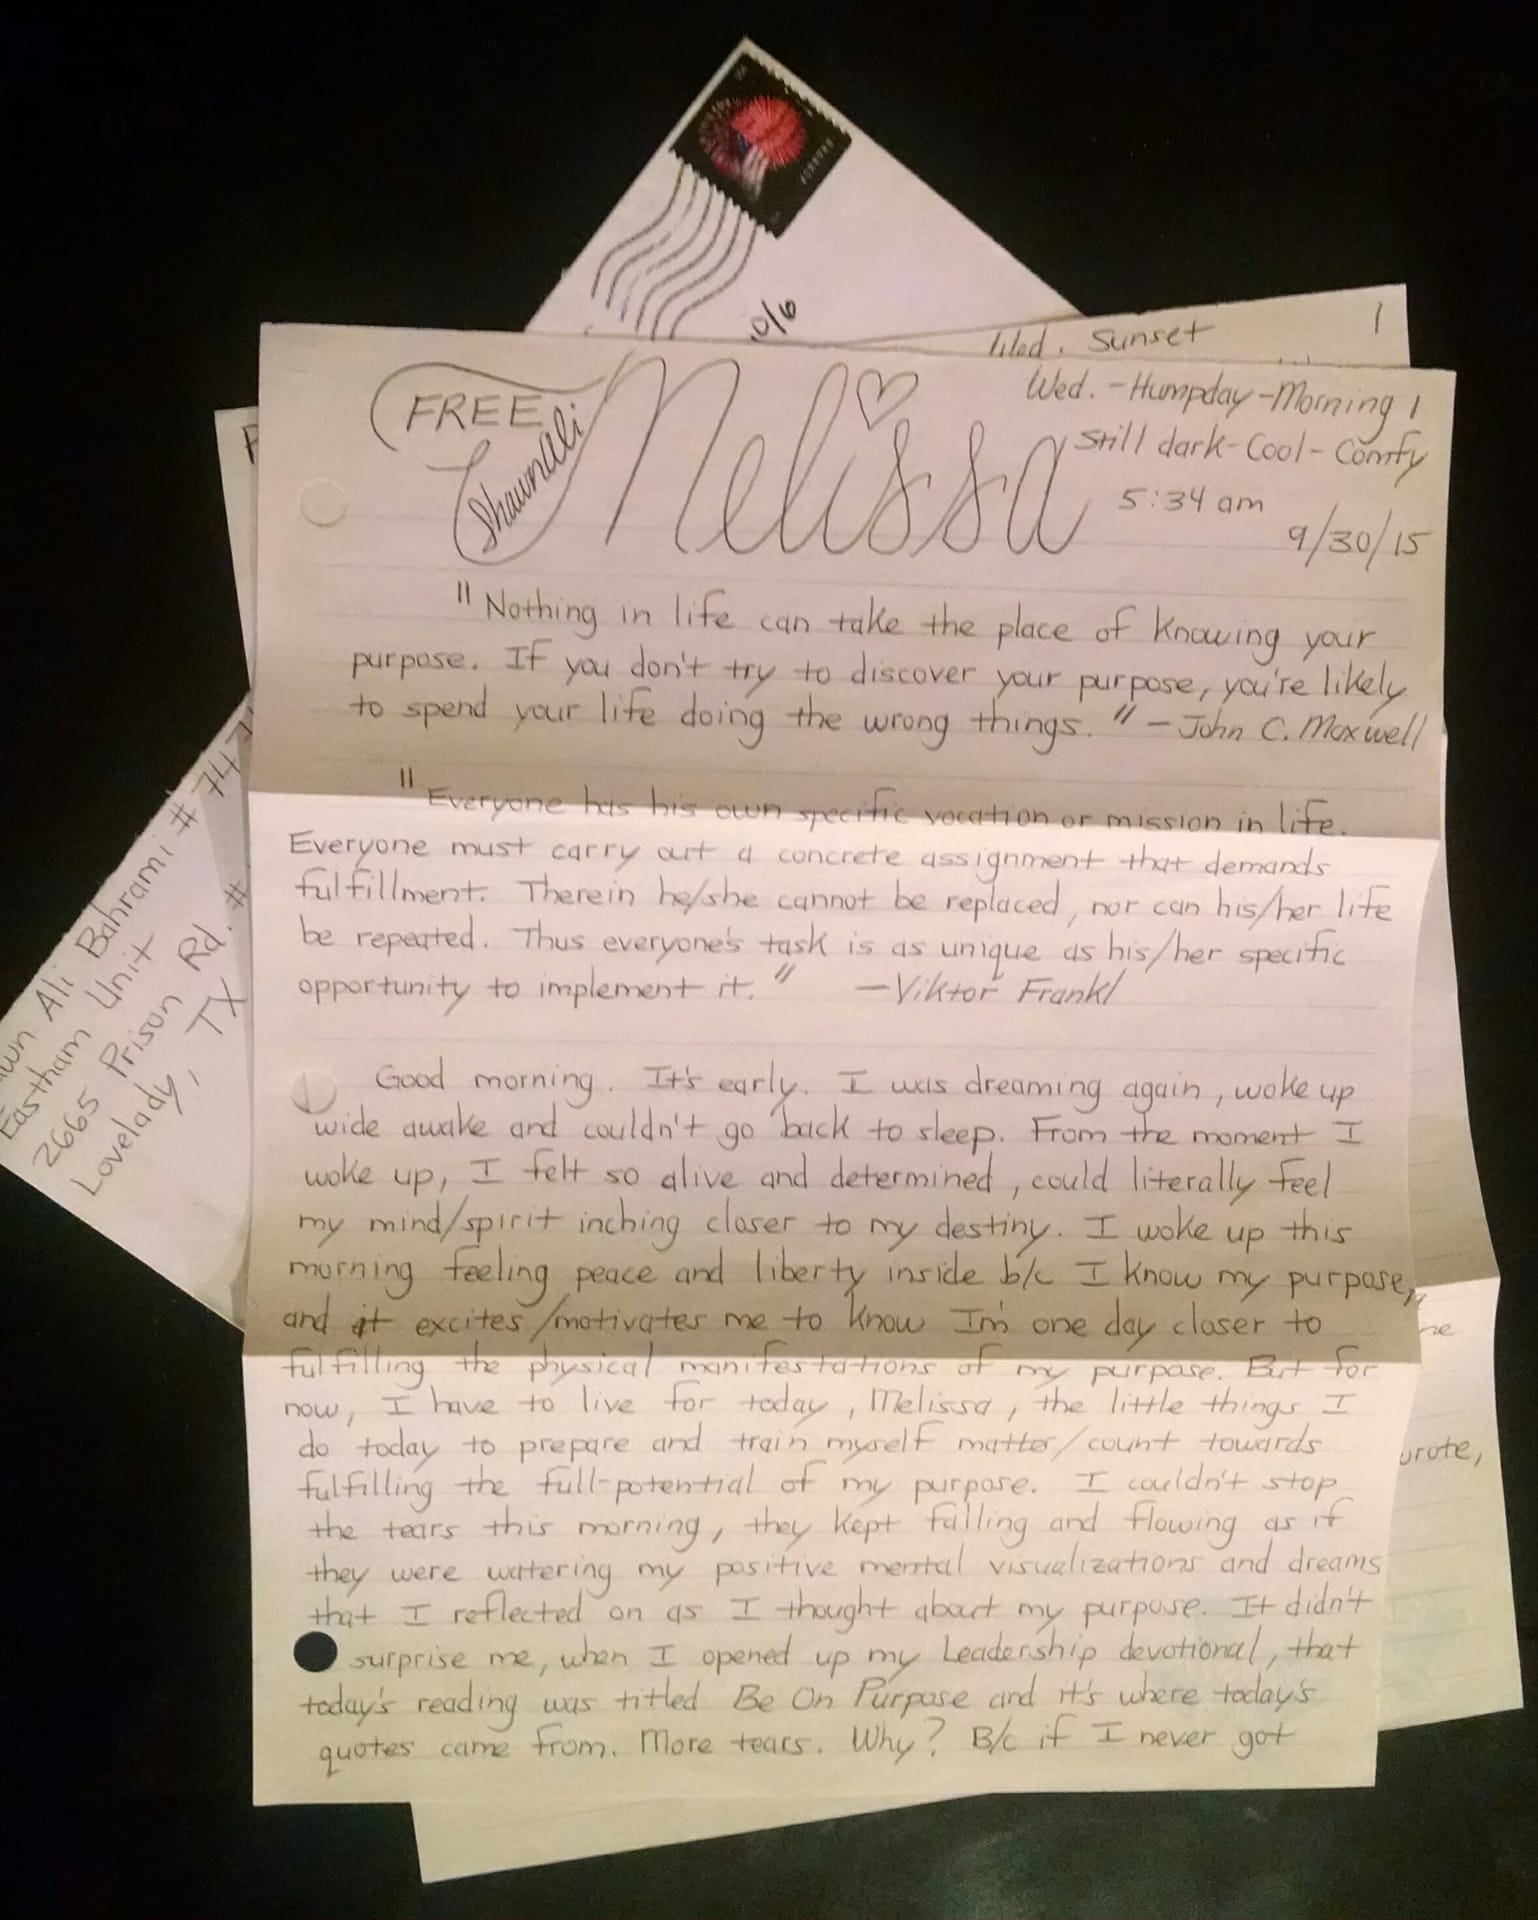 FOREVER
10/6
Wed. Sunset 1
FREE
ShawnAli
Melissa
Wed. - Humpday - Morning 1
Still dark - Cool - Comfy
5:34 am
9/30/15
"Nothing in life can take the place of knowing your
purpose. If you don't try to discover your purpose, you're likely
to spend your life doing the wrong things." - John C. Maxwell
"Everyone has his own specific vocation or mission in life.
Everyone must carry out a concrete assignment that demands
fulfillment. Therein he/she cannot be replaced, nor can his/her life
be repeated. Thus everyone's task is as unique as his/her specific
opportunity to implement it." - Viktor Frankl
Good morning. It's early. I was dreaming again, woke up
wide awake and couldn't go back to sleep. From the moment I
woke up, I felt so alive and determined, could literally feel
my mind/spirit inching closer to my destiny. I woke up this
morning feeling peace and liberty inside b/c I know my purpose,
and it excites/motivates me to know I'm one day closer to
fulfilling the physical manifestations of my purpose. But for
now, I have to live for today, Melissa, the little things I
do today to prepare and train myself matter/count towards
fulfilling the full-potential of my purpose. I couldn't stop
the tears this morning, they kept falling and flowing as if
they were watering my positive mental visualizations and dreams
that I reflected on as I thought about my purpose. It didn't
surprise me, when I opened up my Leadership devotional, that
today's reading was titled Be On Purpose and it's where today's
quotes came from. More tears. Why? B/c if I never got
awn Ali Bahrami # 747
Eastham Unit
2665 Prison Rd. #
Lovelady, TX
ne
wrote,